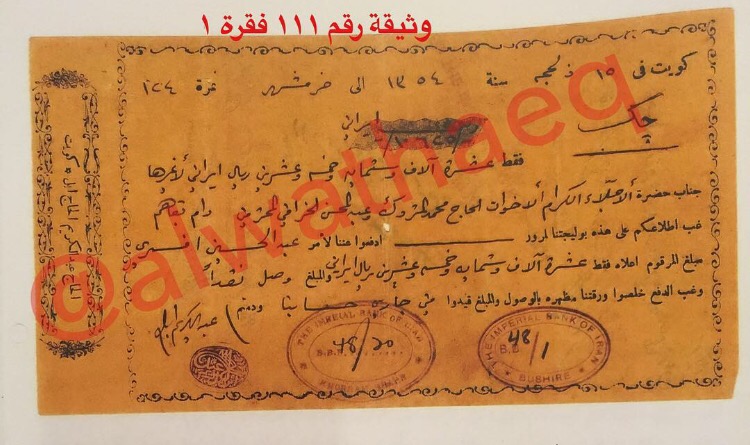 وثيقة رقم ١١١ فقرة ١
كويت في ١٥ ذلحجه سنة ١٣٥٤ الى خرمشهر نمرة ١٢٤
چك
ايراني
فقط عشرة آلاف وستمايه خمسة وعشرين ريال ايراني
جناب حضرة الأجلاء الكرام الأخوان الحاج محمد المتروك وعبدالمحسن الخرافي المحترمين دام بقاهم
غب اطلاعكم على هذه بوليجتنا لمرور ادفعوا عنا لأمر عبدالحسين
مبلغ المرقوم اعلاه فقط عشرة آلاف وستمايه وخمسة وعشرين ريال ايراني والمبلغ وصل نقداً
وغب الدفع خلصوا ورقتنا مظهره بالوصول والمبلغ قيدوا حسابنا ودمتم
THE IMPERIAL BANK OF IRAN
48/20
THE IMPERIAL BANK OF IRAN
48/1
BUSHIRE
@alwathaeq